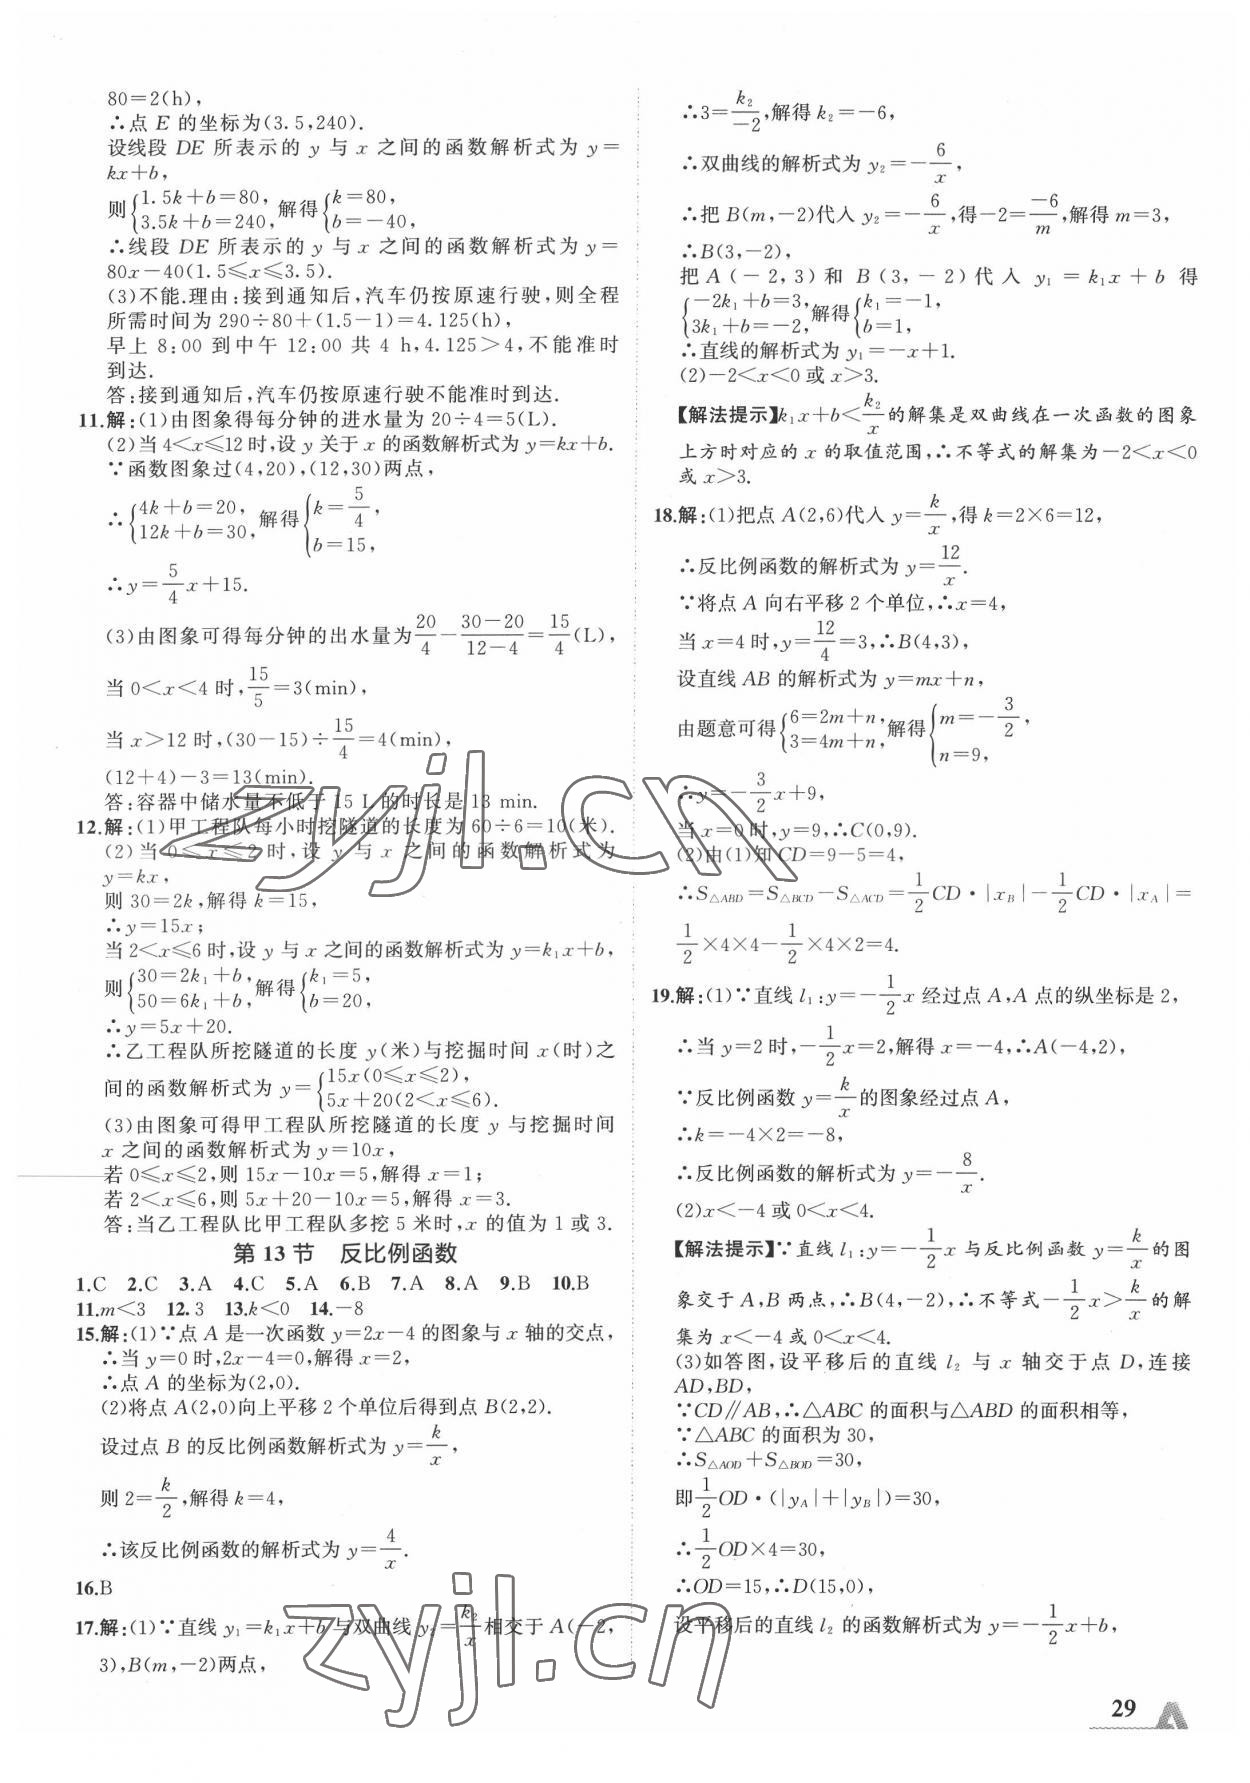 80=2(h),
∴点 E 的坐标为(3.5,240).
设线段 DE 所表示的 y 与 x 之间的函数解析式为 y=
kx+b,
则{1.5k+b=80, 3.5k+b=240, 解得{k=80, b=-40,
∴线段 DE 所表示的 y 与 x 之间的函数解析式为 y=
80x-40(1.5≤x≤3.5).
(3)不能.理由:接到通知后,汽车仍按原速行驶,则全程
所需时间为 290÷80+(1.5-1)=4.125(h),
早上 8:00 到中午 12:00 共 4 h,4.125>4,不能准时
到达.
答:接到通知后,汽车仍按原速行驶不能准时到达.
11.解:(1)由图象得每分钟的进水量为 20÷4=5(L).
(2)当 4<x≤12时,设 y 关于 x 的函数解析式为 y=kx+b.
∵函数图象过(4,20),(12,30)两点,
∴{4k+b=20, 12k+b=30, 解得{k=5/4, b=15,
∴y=5/4x+15.
(3)由图象可得每分钟的出水量为20/4-(30-20)/(12-4)=15/4(L),
当 0<x<4 时,15/5=3(min),
当 x>12 时,(30-15)÷15/4=4(min),
(12+4)-3=13(min).
答:容器中储水量不低于 15 L 的时长是 13 min.
12.解:(1)甲工程队每小时挖隧道的长度为 60÷6=10(米).
(2)当 0≤x≤2 时,设 y 与 x 之间的函数解析式为
y=kx,
则 30=2k,解得 k=15,
∴y=15x;
当 2<x≤6 时,设 y 与 x 之间的函数解析式为 y=k₁x+b,
则{30=2k₁+b, 50=6k₁+b, 解得{k₁=5, b=20,
∴y=5x+20.
∴乙工程队所挖隧道的长度 y(米)与挖掘时间 x(时)之
间的函数解析式为 y={15x(0≤x≤2), 5x+20(2<x≤6).
(3)由图象可得甲工程队所挖隧道的长度 y 与挖掘时间
x 之间的函数解析式为 y=10x,
若 0≤x≤2,则 15x-10x=5,解得 x=1;
若 2<x≤6,则 5x+20-10x=5,解得 x=3.
答:当乙工程队比甲工程队多挖 5 米时,x 的值为 1 或 3.
第 13 节 反比例函数
1.C 2.C 3.A 4.C 5.A 6.B 7.A 8.A 9.B 10.B
11.m<3 12.3 13.k<0 14.-8
15.解:(1)∵点 A 是一次函数 y=2x-4 的图象与 x 轴的交点,
∴当 y=0 时,2x-4=0,解得 x=2,
∴点 A 的坐标为(2,0).
(2)将点 A(2,0)向上平移 2 个单位后得到点 B(2,2).
设过点 B 的反比例函数解析式为 y=k/x,
则 2=k/2,解得 k=4,
∴该反比例函数的解析式为 y=4/x.
16.B
17.解:(1)∵直线 y₁=k₁x+b 与双曲线 y₂=k₂/x 相交于 A(-2,
3),B(m,-2)两点,
∴3=k₂/-2,解得 k₂=-6,
∴双曲线的解析式为 y₂=-6/x,
∴把 B(m,-2)代入 y₂=-6/x,得-2=-6/m,解得 m=3,
∴B(3,-2),
把 A(-2,3) 和 B(3,-2)代入 y₁=k₁x+b 得
{-2k₁+b=3, 3k₁+b=-2, 解得{k₁=-1, b=1,
∴直线的解析式为 y₁=-x+1.
(2)-2<x<0 或 x>3.
【解法提示】k₁x+b<k₂/x的解集是双曲线在一次函数的图象
上方时对应的 x 的取值范围,∴不等式的解集为-2<x<0
或 x>3.
18.解:(1)把点 A(2,6)代入 y=k/x,得 k=2×6=12,
∴反比例函数的解析式为 y=12/x.
∵将点 A 向右平移 2 个单位,∴x=4,
当 x=4 时,y=12/4=3,∴B(4,3),
设直线 AB 的解析式为 y=mx+n,
由题意可得{6=2m+n, 3=4m+n, 解得{m=-3/2, n=9,
∴y=-3/2x+9,
当 x=0 时,y=9,∴C(0,9).
(2)由(1)知 CD=9-5=4,
∴S△ABD=S△BCD-S△ACD=1/2CD·|x_B|-1/2CD·|x_A|=
1/2×4×4-1/2×4×2=4.
19.解:(1)∵直线 l₁:y=-1/2x 经过点 A,A 点的纵坐标是 2,
∴当 y=2 时,-1/2x=2,解得 x=-4,∴A(-4,2),
∵反比例函数 y=k/x的图象经过点 A,
∴k=-4×2=-8,
∴反比例函数的解析式为 y=-8/x.
(2)x<-4 或 0<x<4.
【解法提示】∵直线 l₁:y=-1/2x 与反比例函数 y=k/x的图
象交于 A,B 两点,∴B(4,-2),∴不等式-1/2x>k/x的解
集为 x<-4 或 0<x<4.
(3)如答图,设平移后的直线 l₂ 与 x 轴交于点 D,连接
AD,BD,
∵CD∥AB,∴△ABC 的面积与△ABD 的面积相等,
∵△ABC 的面积为 30,
∴S△AOD+S△BOD=30,
即1/2OD·(|y_A|+|y_B|)=30,
∴1/2OD×4=30,
∴OD=15,∴D(15,0),
设平移后的直线 l₂ 的函数解析式为 y=-1/2x+b,
29
zyjl.cn
zyjl.cn